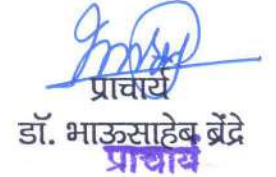 प्राचार्य
डॉ. भाऊसाहेब ब्रेंद्रे
प्राचार्य